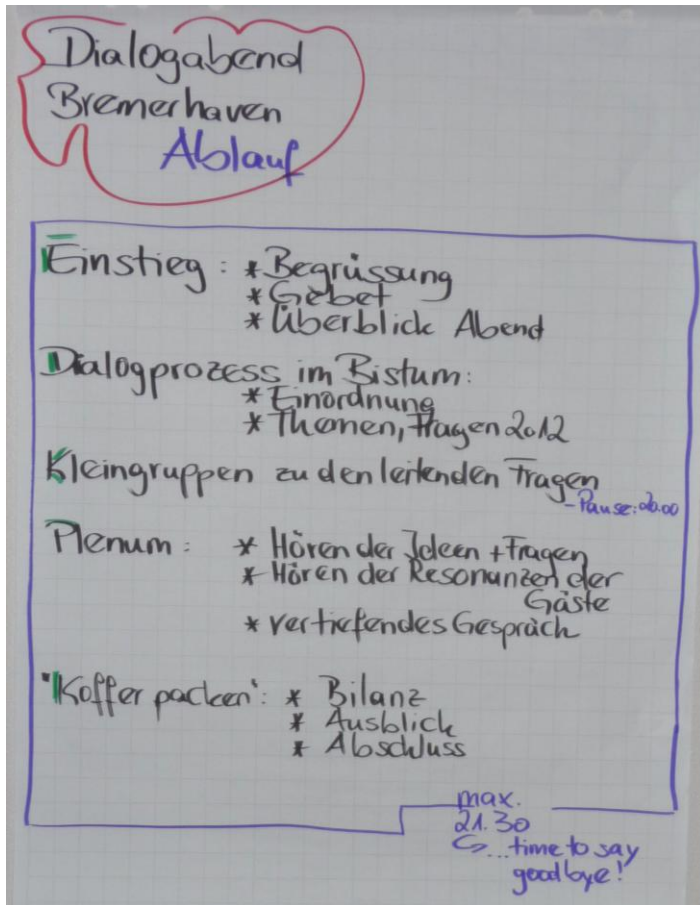 Dialogabend
Bremerhaven
Ablauf
Einstieg: * Begrüssung
* Gebet
* Überblick Abend
Dialogprozess im Bistum:
* Einordnung
* Themen, Fragen 2012
Kleingruppen zu den leitenden Fragen
- Pause: 20.00
Plenum: * Hören der Ideen + Fragen
* Hören der Resonanzen der
Gäste
* vertiefendes Gespräch
"Koffer packen": * Bilanz
* Ausblick
* Abschluss
max.
21.30
↪...time to say
goodbye!